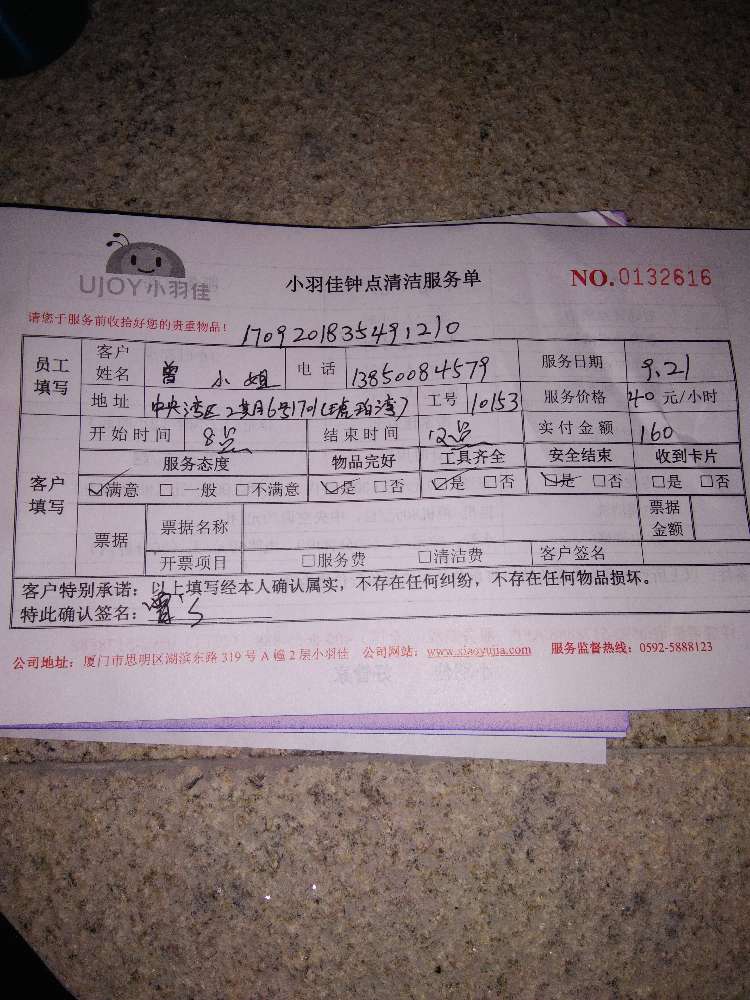 UJOY小羽佳
小羽佳钟点清洁服务单
NO.0132616
请您于服务前收拾好您的贵重物品!
1709201835491210
员工填写 客户姓名 曾小姐 电话 13850084579 服务日期 9.21
地址 中央湾区2期6号1701(琥珀湾) 工号 10153 服务价格 40 元/小时
客户填写 开始时间 8点 结束时间 12点 实付金额 160
服务态度 物品完好 工具齐全 安全结束 收到卡片
☑满意 □一般 □不满意 ☑是 □否 ☑是 □否 ☑是 □否 □是 □否
票据 票据名称 票据金额
开票项目 □服务费 □清洁费 客户签名
客户特别承诺:以上填写经本人确认属实,不存在任何纠纷,不存在任何物品损坏。
特此确认签名:曾
公司地址:厦门市思明区湖滨东路319号A幢2层小羽佳 公司网站:www.xiaoyujia.com 服务监督热线:0592-5888123